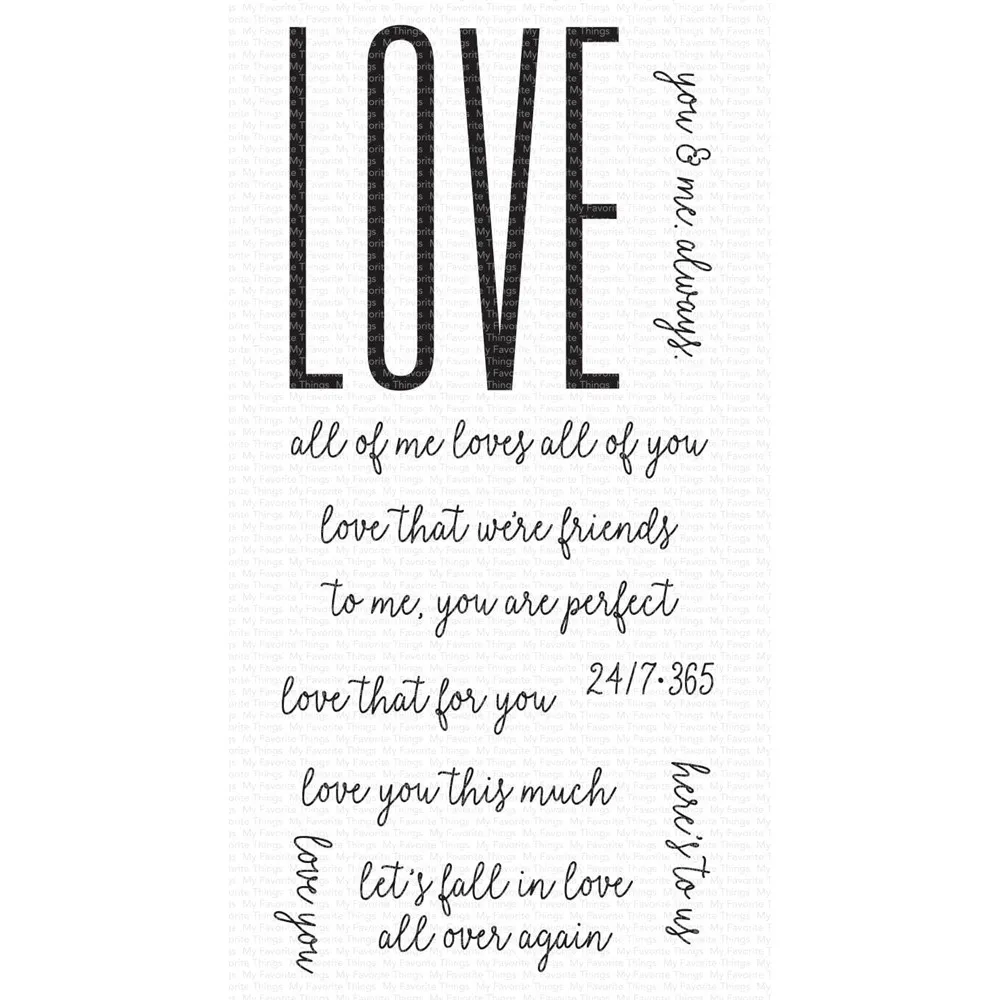 LOVE
you & me. always.
all of me loves all of you
love that we're friends
to me, you are perfect
love that for you
24/7•365
love you this much
here's to us
love you
let's fall in love
all over again
My Favorite Things